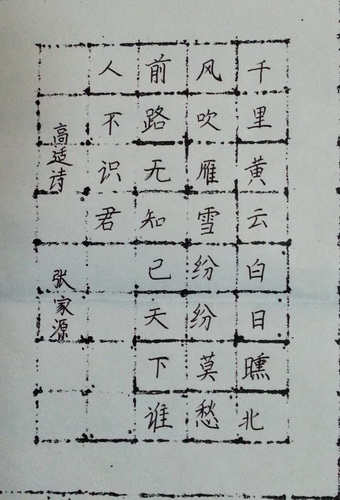 千里黄云白日曛北
风吹雁雪纷纷莫愁
前路无知己天下谁
人不识君
高适诗 张家源